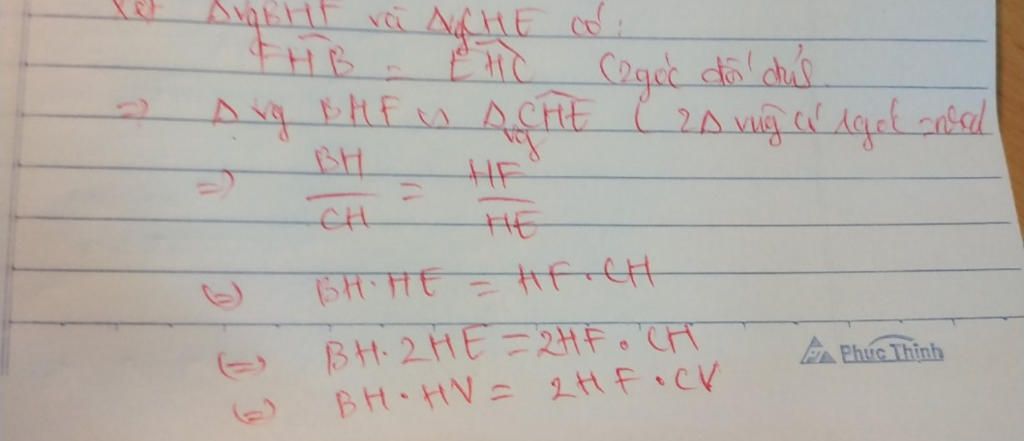 Xét ΔvgBHF và ΔvgCHE có:
FHB = EHC (2góc đối đỉnh
=> Δ vg BHF ∽ Δvg CHE ( 2Δ vuông có 1góc =nhau
=> BH/CH = HF/HE
(=) BH.HE = HF.CH
(=) BH.2HE = 2HF.CH
(=) BH.HV = 2HF.CV
Phúc Thịnh